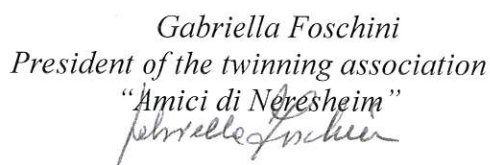 Gabriella Foschini
President of the twinning association
“Amici di Neresheim”
Gabriella Foschini